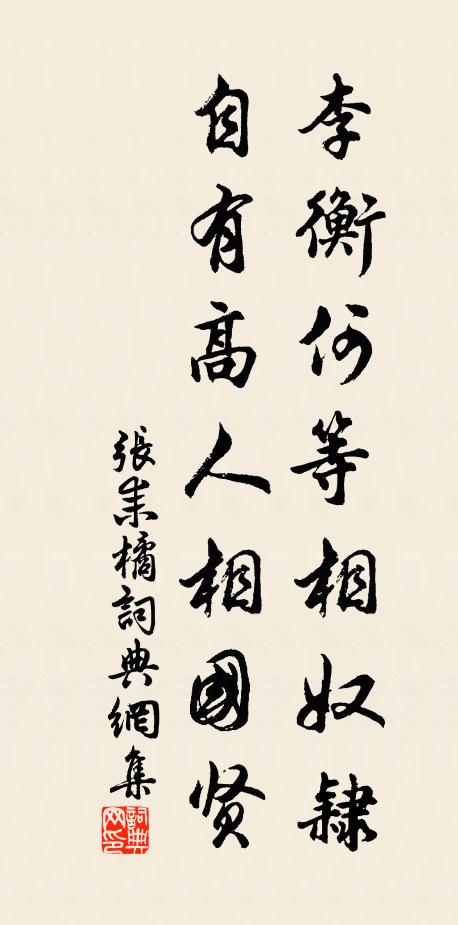 李衡何等相奴隸
自有高人相國贤
張耒橘詞典網集
詞典网印